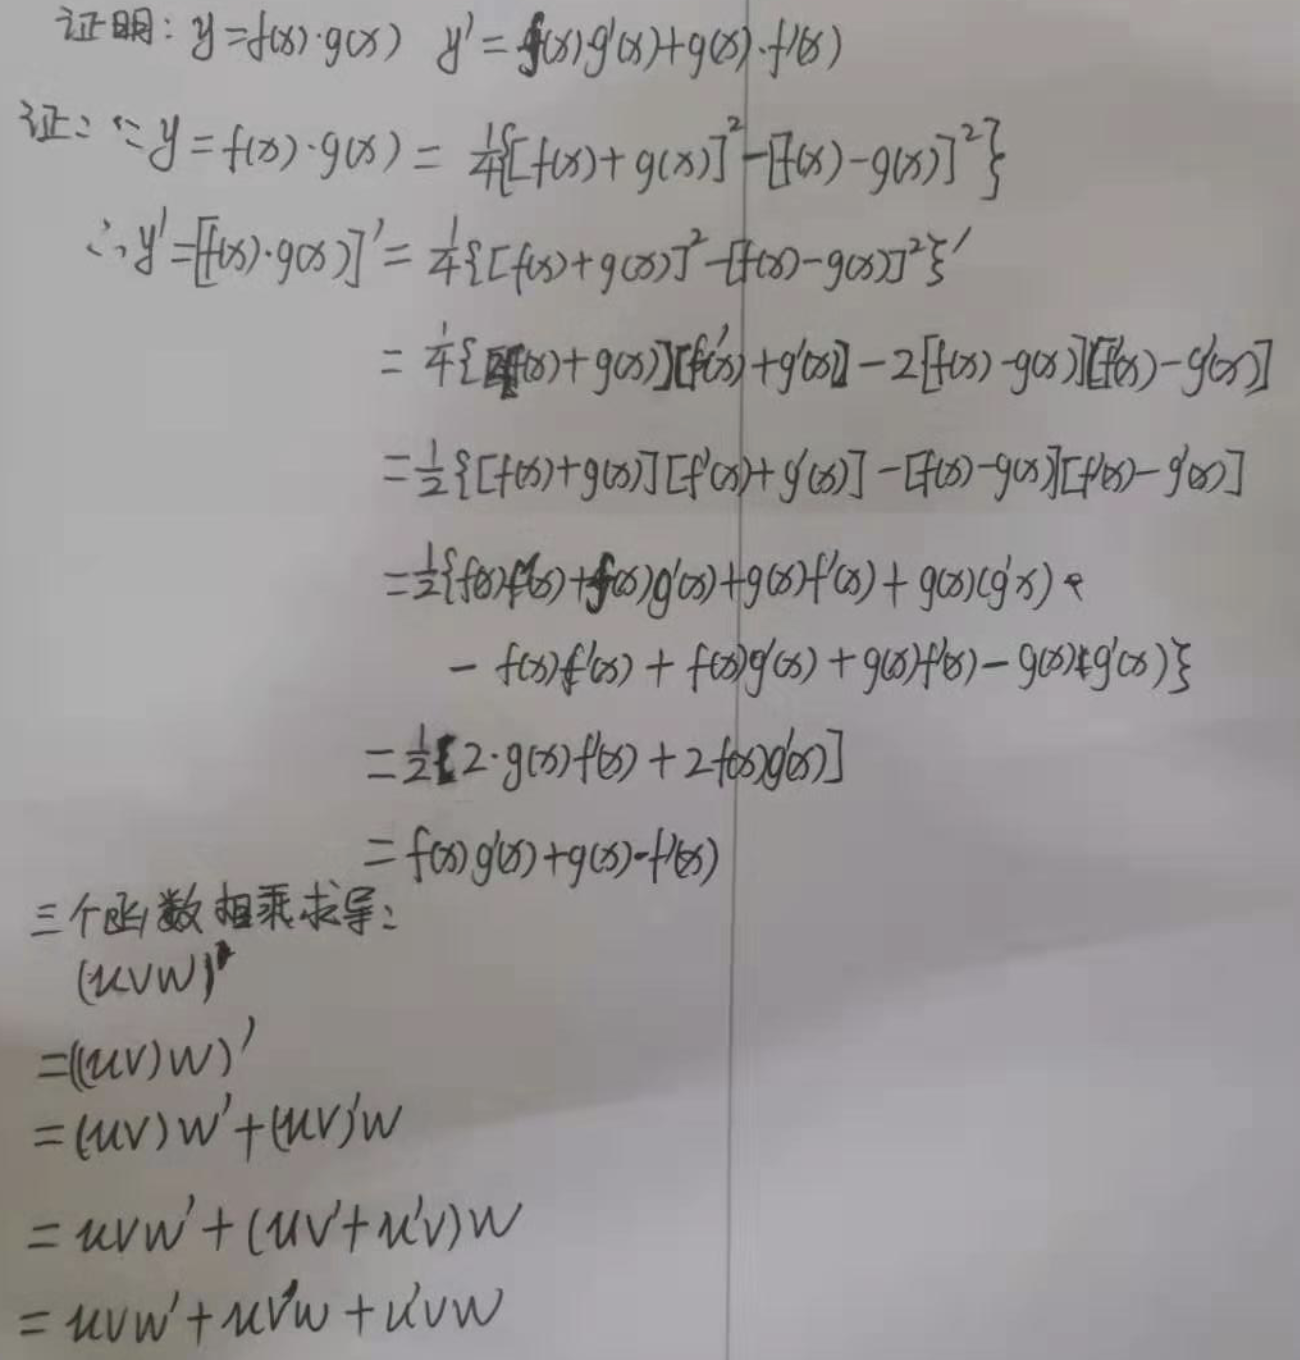 证明: y=f(x)·g(x) y'=f(x)g'(x)+g(x)·f'(x)
证: ∵y=f(x)·g(x)=1/4{[f(x)+g(x)]²-[f(x)-g(x)]²}
∴y'=[f(x)·g(x)]'=1/4{[f(x)+g(x)]²-[f(x)-g(x)]²}'
=1/4{2[f(x)+g(x)][f'(x)+g'(x)]-2[f(x)-g(x)][f'(x)-g'(x)]
=1/2{[f(x)+g(x)][f'(x)+g'(x)]-[f(x)-g(x)][f'(x)-g'(x)]
=1/2{f(x)f'(x)+f(x)g'(x)+g(x)f'(x)+g(x)(g'x)
-f(x)f'(x)+f(x)g'(x)+g(x)f'(x)-g(x)(g'(x)}
=1/2[2·g(x)f'(x)+2f(x)g'(x)]
=f(x)g'(x)+g(x)·f'(x)
三个函数相乘求导:
(uvw)'
=((uv)w)'
=(uv)w'+(uv)'w
=uvw'+(uv'+u'v)w
=uvw'+uv'w+u'vw